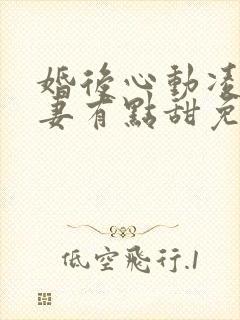 婚後心動凌
妻有點甜免
低空飛行.1